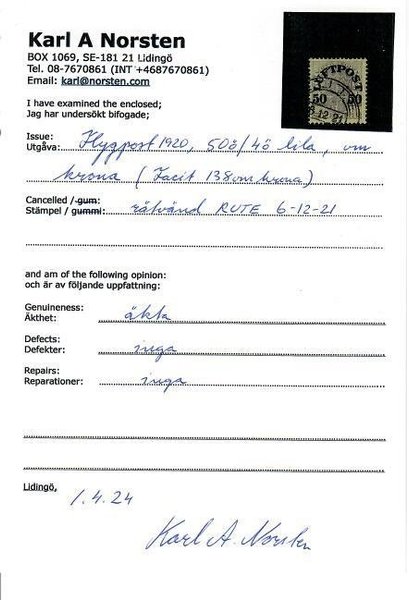 Karl A Norsten
BOX 1069, SE-181 21 Lidingö
Tel. 08-7670861 (INT +4687670861)
Email: karl@norsten.com
I have examined the enclosed;
Jag har undersökt bifogade;
LUFTPOST
50 50
12 21
Issue:
Utgåva: Flygpost 1920, 50ö/4ö lila, vm
krona (Facit 138vm krona)
Cancelled /-gum:
Stämpel / gummi: rätvänd RUTE 6-12-21
and am of the following opinion:
och är av följande uppfattning:
Genuineness:
Äkthet: äkta
Defects:
Defekter: inga
Repairs:
Reparationer: inga
Lidingö, 1.4.24
Karl A. Norsten